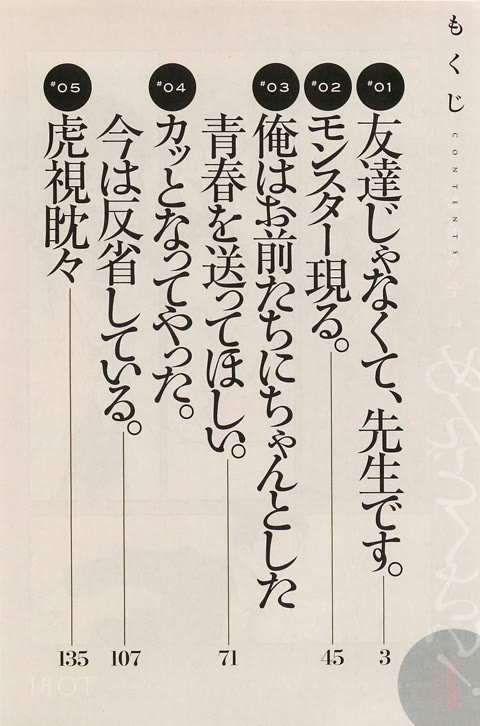 もくじ
CONTENTS
#01
友達じゃなくて、先生です。
3
#02
モンスター現る。
45
#03
俺はお前たちにちゃんとした
青春を送ってほしい。
71
#04
カッとなってやった。
今は反省している。
107
#05
虎視眈々
135